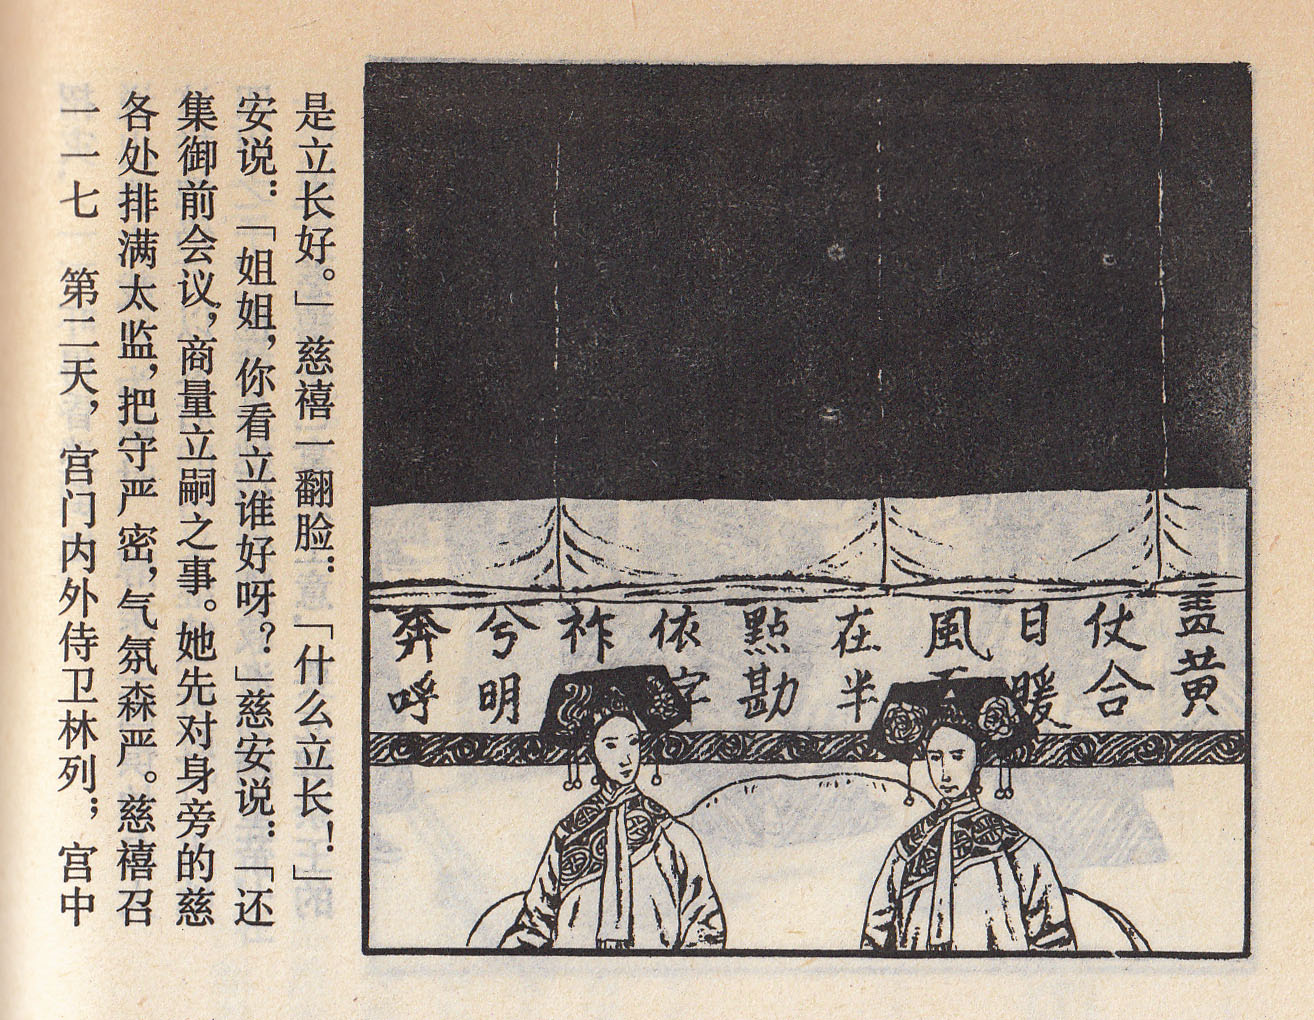 一一七 第二天，宫门内外侍卫林列；宫中
各处排满太监，把守严密，气氛森严。慈禧召
集御前会议，商量立嗣之事。她先对身旁的慈
安说：「姐姐，你看立谁好呀？」慈安说：「还
是立长好。」慈禧一翻脸：「什么立长！」
盖黄
仗合
日暖
風
在半
點勘
依字
祚
兮明
奔呼